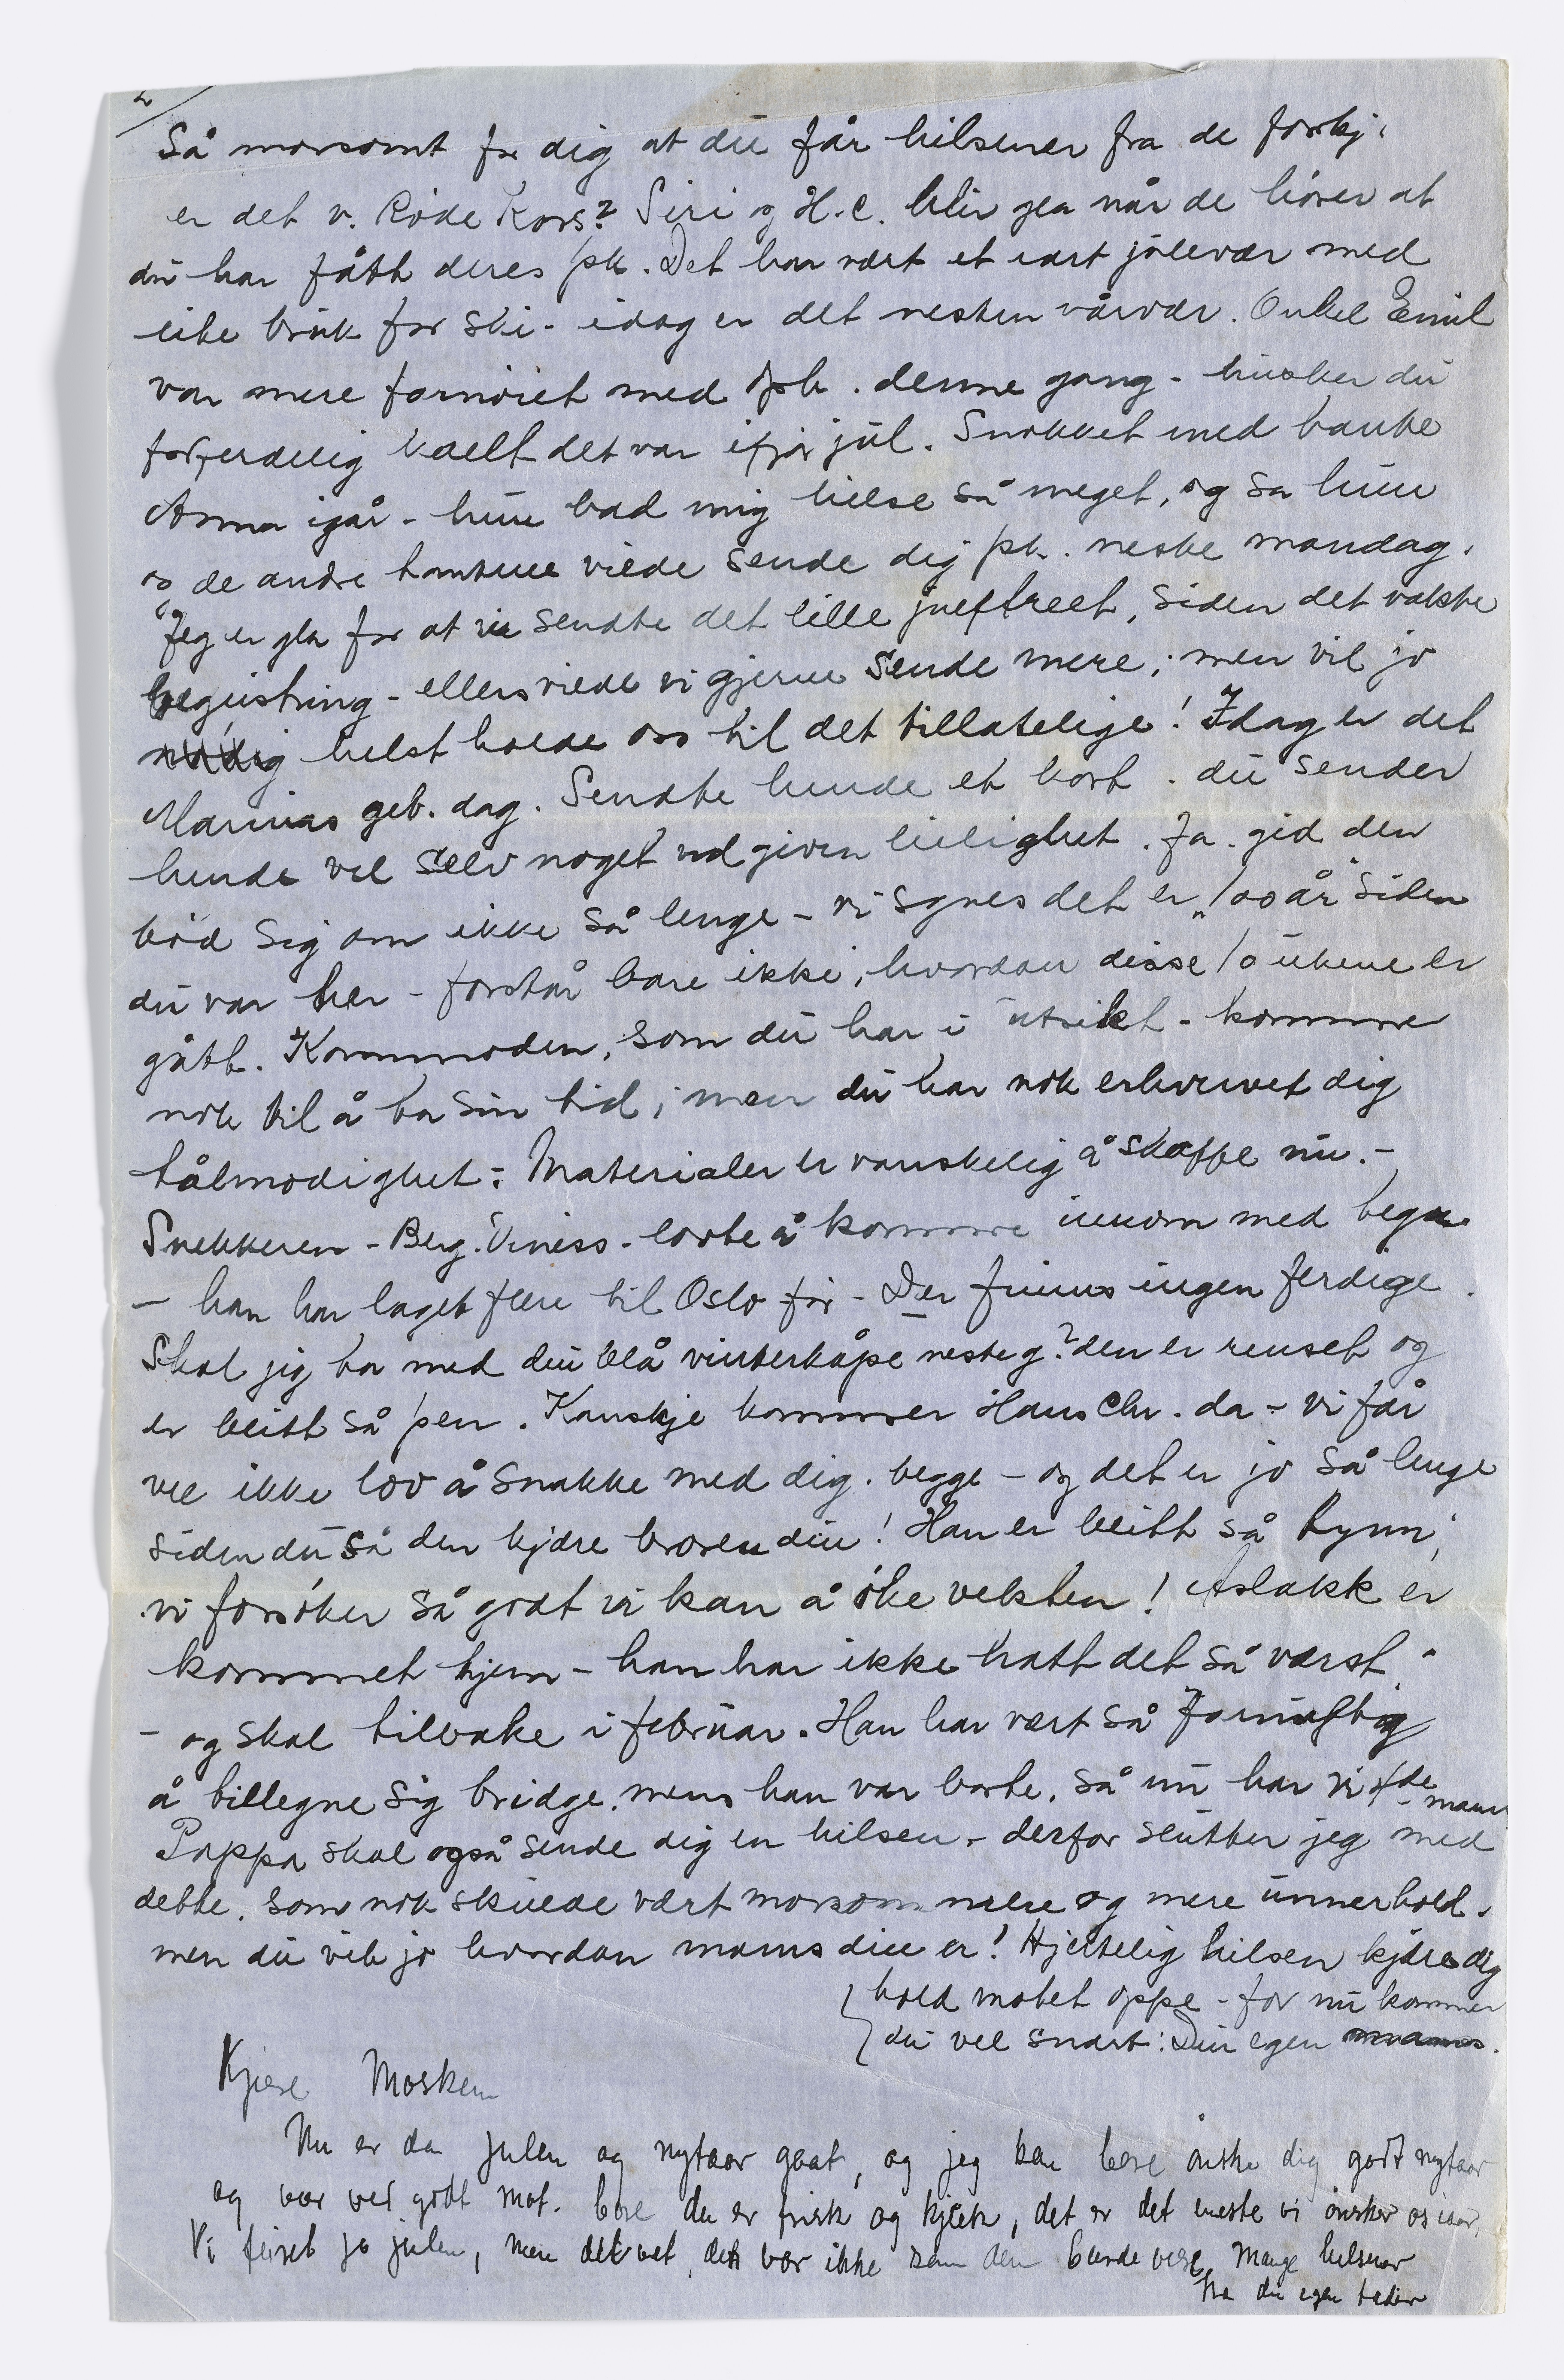 2/
Så morsomt for dig at du får hilsener fra de forskj.
er det v. Röde Kors? Siri og H.C. blir gla når de hörer at
du har fått deres pk. Det har vært et rart julevær med
lite bruk for ski - idag er det nesten vårvær. Onkel Emil
var mere fornöiet med opk. denne gang - husker du
forferdelig kaldt det var ifjor jul. Snakket med tante
Anna igår - hun bad mig hilse så meget, og sa hun
og de andre tantene vilde sende dig pk. neste mandag.
Jeg er gla for at vi sendte det lille juletreet, siden det vakte
begeistring - ellers vilde vi gjerne sende mere; men vil jo
helst holde oss til det tillatelige! Idag er det
Marinas geb. dag. Sendte hende et kort. du sender
hende vel selv noget ved given leilighet. Ja. gid den
böd sig om ikke så lenge - vi synes det er „100 år" siden
du var her - forstår bare ikke, hvordan disse 10 ukene er
gått. Kommoden, som du har i utsikt - kommer
nok til å ta sin tid; men du har nok erhvervet dig
tålmodighet: Materialer er vanskelig å skaffe nu. -
Snekkeren - Berg. Viness. lovte å komme innom med tegn.
- han har laget flere til Oslo för - Der finns ingen ferdige.
Skal jeg ta med din blå vinterkåpe neste g? den er renset og
er blitt så pen. Kanskje kommer Hans Chr. da - vi får
vel ikke lov å snakke med dig. begge - og det er jo så lenge
siden du så den kjære broren din! Han er blitt så tynn;
vi forsöker så godt vi kan å öke vekten! Aslakk er
kommet hjem - han har ikke hatt det så værst.
- og skal tilbake i februar. Han har vært så fornuftig
å tillegne sig bridge. mens han var borte. Så nu har vi 4de mann
Pappa skal også sende dig en hilsen - derfor slutter jeg med
dette. som nok skulde vært morsommere og mere unnerhold.
men du vet jo hvordan mams din er! Hjertelig hilsen kjære dig
hold motet oppe - for nu kommer
du vel snart! Din egen mams.
Kjære Mosken
Nu er da julen og nytaar gaat, og jeg kan bare önske dig godt nytaar
og vær ved godt mot. bare du er frisk og kjæk, det er det meste vi önsker os iaar.
Vi feiret jo julen, men det vet, den var ikke som den burde være. Mange hilsener
fra din egen fader